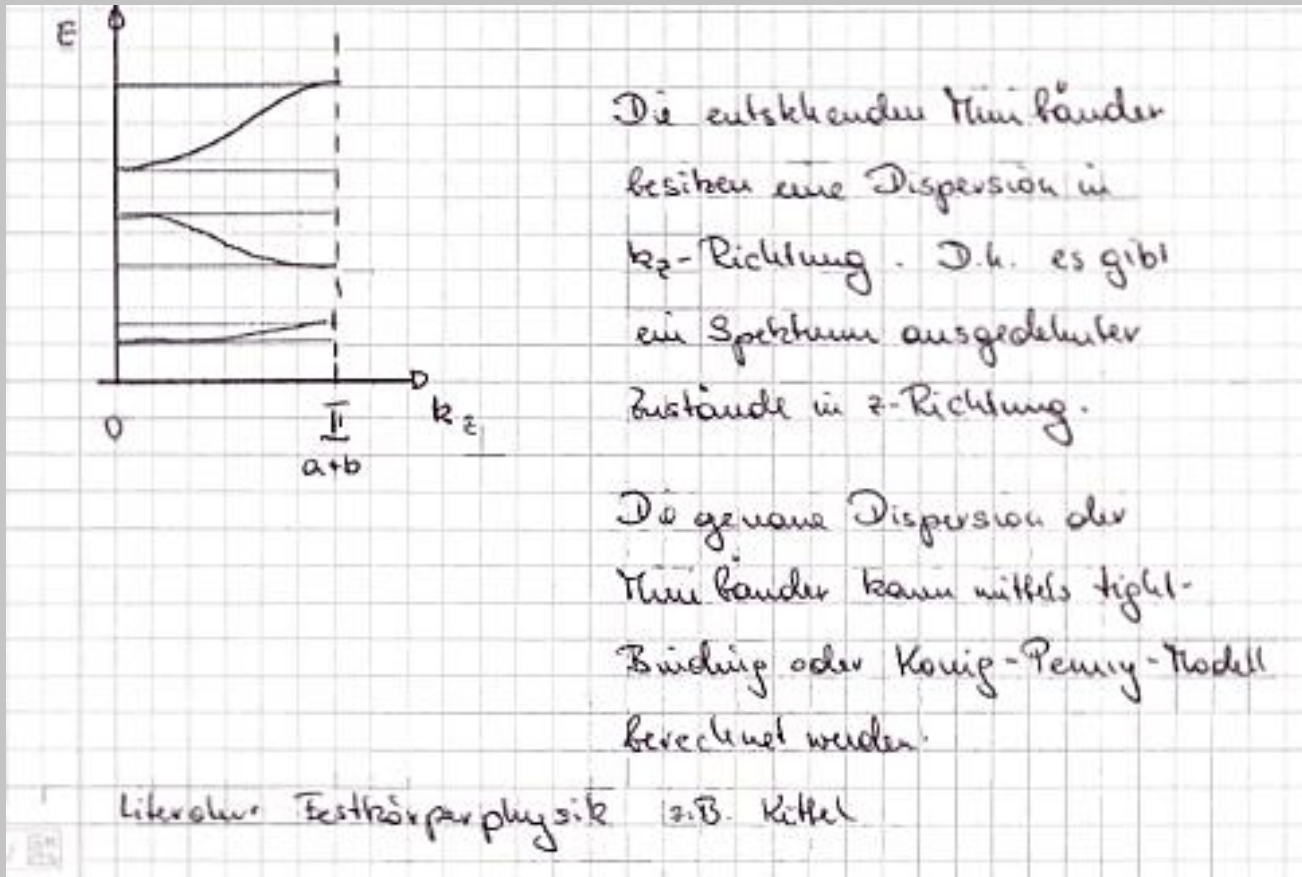 E
Die entstehenden Minibänder
besitzen eine Dispersion in
k_z-Richtung. D.h. es gibt
ein Spektrum ausgedehnter
Zustände in z-Richtung.
0
π
a+b
k_z
Die genaue Dispersion der
Minibänder kann mittels tight-
Binding oder König-Penny-Modell
berechnet werden.
Literatur Festkörperphysik z.B. Kittel